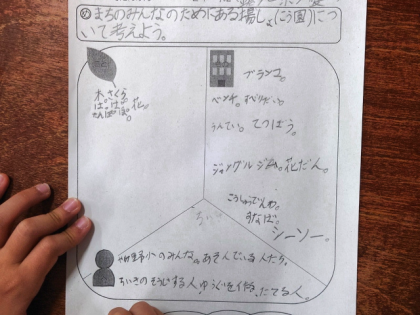 め まちのみんなのためにある場しょ(こう園)につ
いて考えよう。
木。さくら
は。はっぱ。花。
たんぽぽ。
ブランコ。
ベンチ。すべりだい。
うんてい。てつぼう。
ジャングルジム。花だん。
こうしゅうでんわ。
すなば。
シーソー。
小のみんな。あそんでいる人たち。
ちいきのそうじする人。ゆうぐを たてる人。